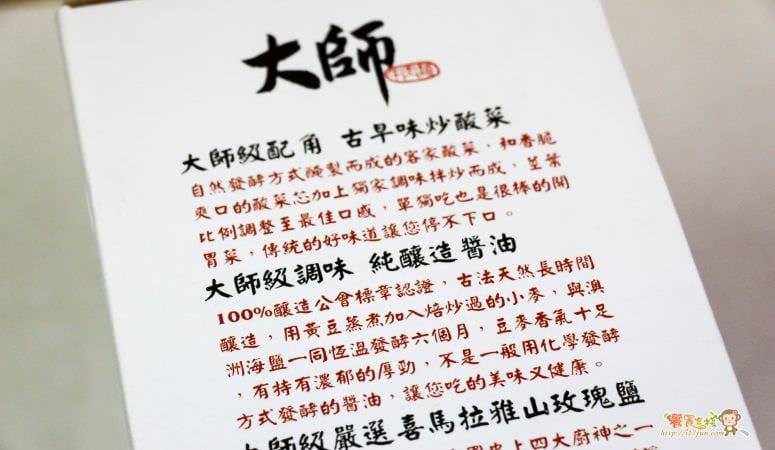 大師
大師級配角 古早味炒酸菜
自然發酵方式醃製而成的客家酸菜，和香脆
爽口的酸菜芯加上獨家調味拌炒而成，莖葉
比例調整至最佳口感，單獨吃也是很棒的開
胃菜，傳統的好味道讓您停不下口。
大師級調味 純釀造醬油
100%釀造公會標章認證，古法天然長時間
釀造，用黃豆蒸煮加入焙炒過的小麥，與澳
洲海鹽一同恆溫發酵六個月，豆麥香氣十足
，有持有濃郁的厚勁，不是一般用化學發酵
方式發酵的醬油，讓您吃的美味又健康。
大師級嚴選喜馬拉雅山玫瑰鹽
史上四大廚神之一
http://it17fun.com/